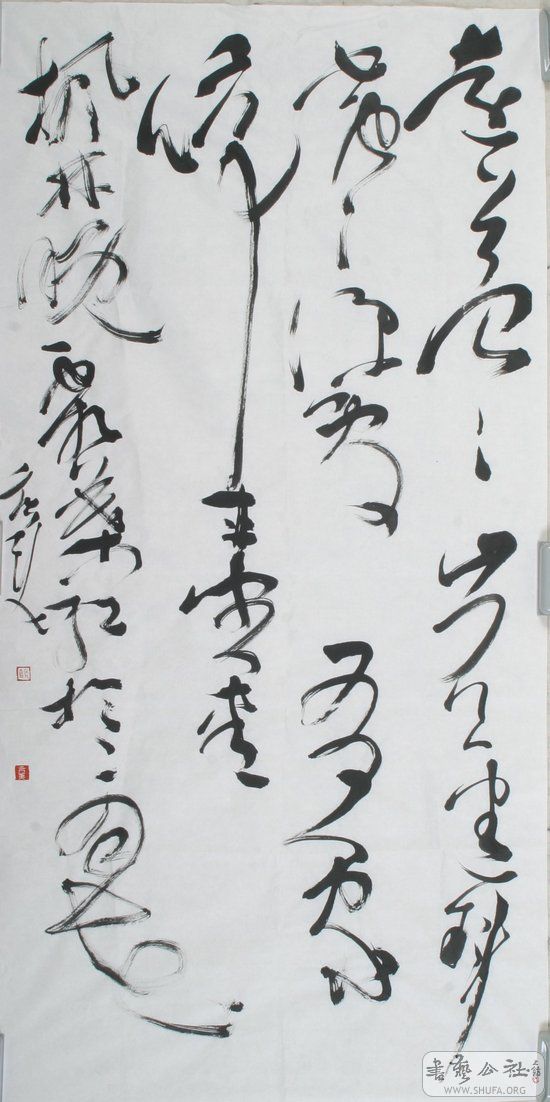 遠上寒山石徑斜
白雲深處有人家
停車坐愛
楓林晚霜葉紅於二月花
書藝公社
WWW.SHUFA.ORG